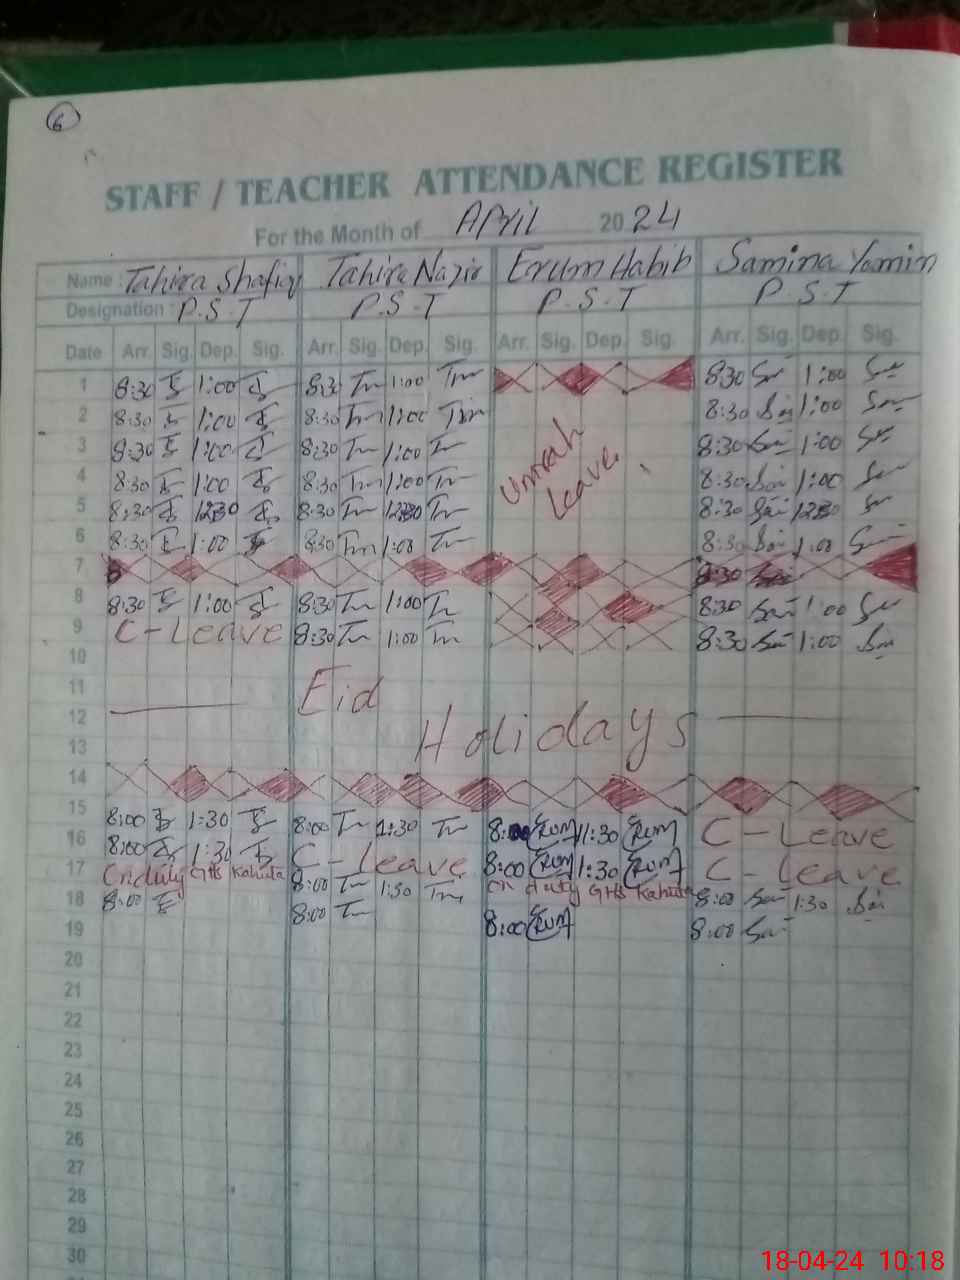 6
STAFF / TEACHER ATTENDANCE REGISTER
For the Month of April 2024
Name : Tahira Shafiq Tahira Nazir Erum Habib Samina Yamin
Designation : P.S.T P.S.T P.S.T P.S.T
Date Arr. Sig. Dep. Sig. Arr. Sig. Dep. Sig. Arr. Sig. Dep. Sig. Arr. Sig. Dep. Sig.
1 8:30 1:00 8:30 Tm 1:00 Tm 8:30 1:00
2 8:30 1:00 8:30 Tm 1:00 Tm 8:30 1:00
3 8:30 1:00 8:30 Tm 1:00 Tm Umrah 8:30 1:00
4 8:30 1:00 8:30 Tm 1:00 Tm Leave. 8:30 1:00
5 8:30 1230 8:30 Tm 1230 Tm 8:30 1230
6 8:30 1:00 8:30 Tm 1:00 Tm 8:30 1:00
7 8:30
8 8:30 1:00 8:30 Tm 1:00 Tm 8:30 1:00
9 C-Leave 8:30 Tm 1:00 Tm 8:30 1:00
10
11 Eid
12 Holidays
13
14
15 8:00 1:30 8:00 Tm 1:30 Tm 8:00 Erum 1:30 Erum C-Leave
16 8:00 1:30 C-Leave 8:00 Erum 1:30 Erum C-Leave
17 On duty GHS Kahuta 8:00 Tm 1:30 Tm on duty GHS Kahuta 8:00 1:30
18 8:00 8:00 Tm 8:00 Erum 8:00
19
20
21
22
23
24
25
26
27
28
29
30
18-04-24 10:18